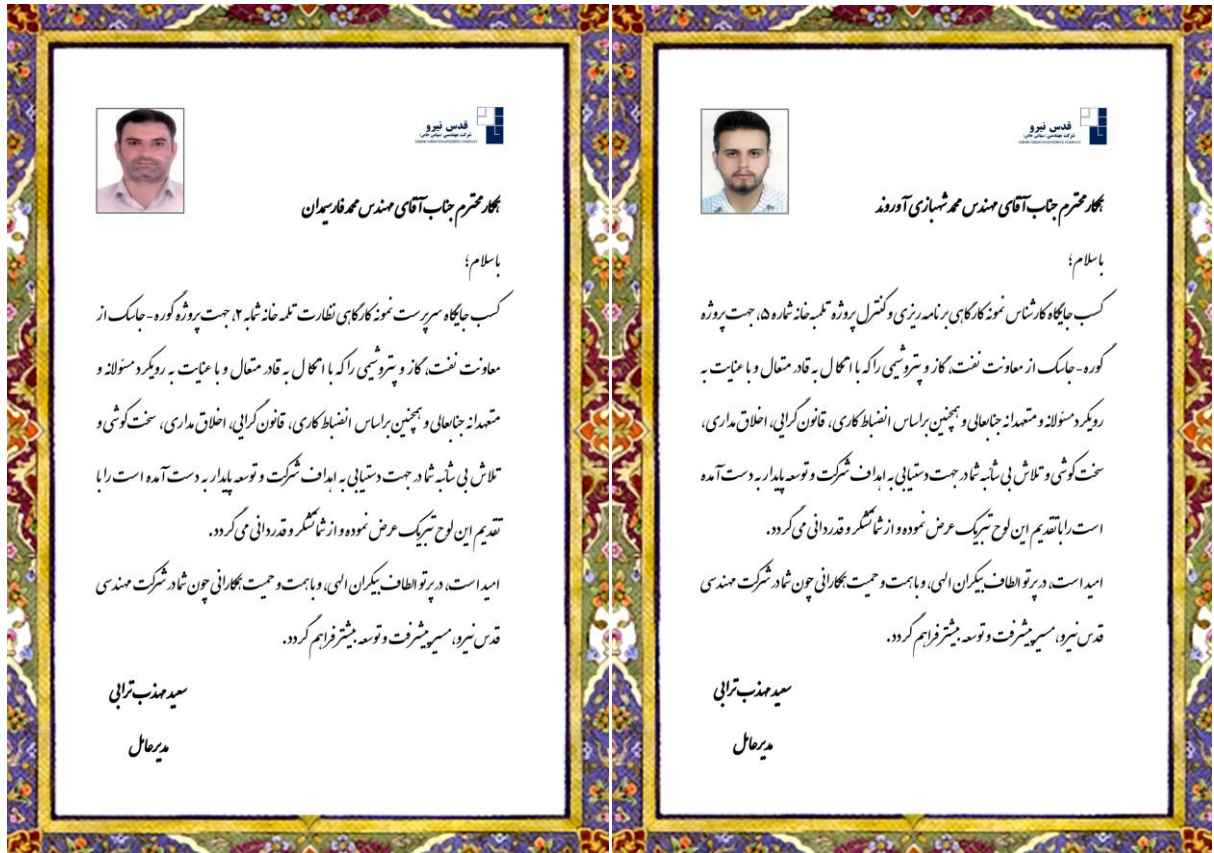 قدس نیرو
شرکت مهندسی (سهامی خاص)
GHODS NIROO ENGINEERING COMPANY
همکار محترم جناب آقای مهندس محمد شهبازی آوروند
باسلام؛
کسب جایگاه کارشناس نمونه کارگاهی برنامه ریزی و کنترل پروژه تلمبه خانه شماره ۵، جهت پروژه
گوره-جاسک از معاونت نفت، گاز و پتروشیمی را که با اتکال به قادر متعال و با عنایت به
رویکرد مسئولانه و متعهدانه جنابعالی و همچنین براساس انضباط کاری، قانون گرایی، اخلاق مداری،
سخت کوشی و تلاش بی شائبه شما در جهت دستیابی به اهداف شرکت و توسعه پایدار به دست آمده
است را با تقدیم این لوح تبریک عرض نموده و از شما تشکر و قدردانی می گردد.
امید است، در پرتو الطاف بیکران الهی، و با همت و حمیت همکارانی چون شما در شرکت مهندسی
قدس نیرو، مسیر پیشرفت و توسعه بیشتر فراهم گردد.
سعید مهذب ترابی
مدیرعامل
قدس نیرو
شرکت مهندسی (سهامی خاص)
GHODS NIROO ENGINEERING COMPANY
همکار محترم جناب آقای مهندس محمد فارسیدان
باسلام؛
کسب جایگاه سرپرست نمونه کارگاهی نظارت تلمبه خانه شماره ۲، جهت پروژه گوره-جاسک از
معاونت نفت، گاز و پتروشیمی را که با اتکال به قادر متعال و با عنایت به رویکرد مسئولانه و
متعهدانه جنابعالی و همچنین براساس انضباط کاری، قانون گرایی، اخلاق مداری، سخت کوشی و
تلاش بی شائبه شما در جهت دستیابی به اهداف شرکت و توسعه پایدار به دست آمده است را با
تقدیم این لوح تبریک عرض نموده و از شما تشکر و قدردانی می گردد.
امید است، در پرتو الطاف بیکران الهی، و با همت و حمیت همکارانی چون شما در شرکت مهندسی
قدس نیرو، مسیر پیشرفت و توسعه بیشتر فراهم گردد.
سعید مهذب ترابی
مدیرعامل